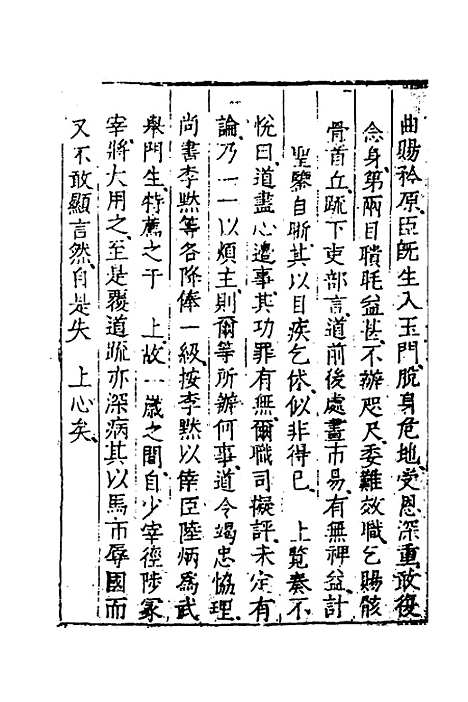 曲賜矜原臣既生入玉門脫身危地受恩深重敢復
念身第兩目聵眊益甚不辦咫尺委難效職乞賜骸
骨首丘疏下吏部言道前後處畫市易有無裨益計
聖鑒自晰其以目疾乞休似非得已　上覽奏不
悅曰道盡心邊事其功罪有無爾職司擬評未定有
論乃一一以煩主則爾等所辦何事道令竭忠恊理
尚書李默等各降俸一級按李默以倖臣陸炳為武
舉門生特薦之于　上故一歲之間自少宰徑陟冢
宰將大用之至是覆道疏亦深病其以馬市辱國而
又不敢顯言然自是失　上心矣